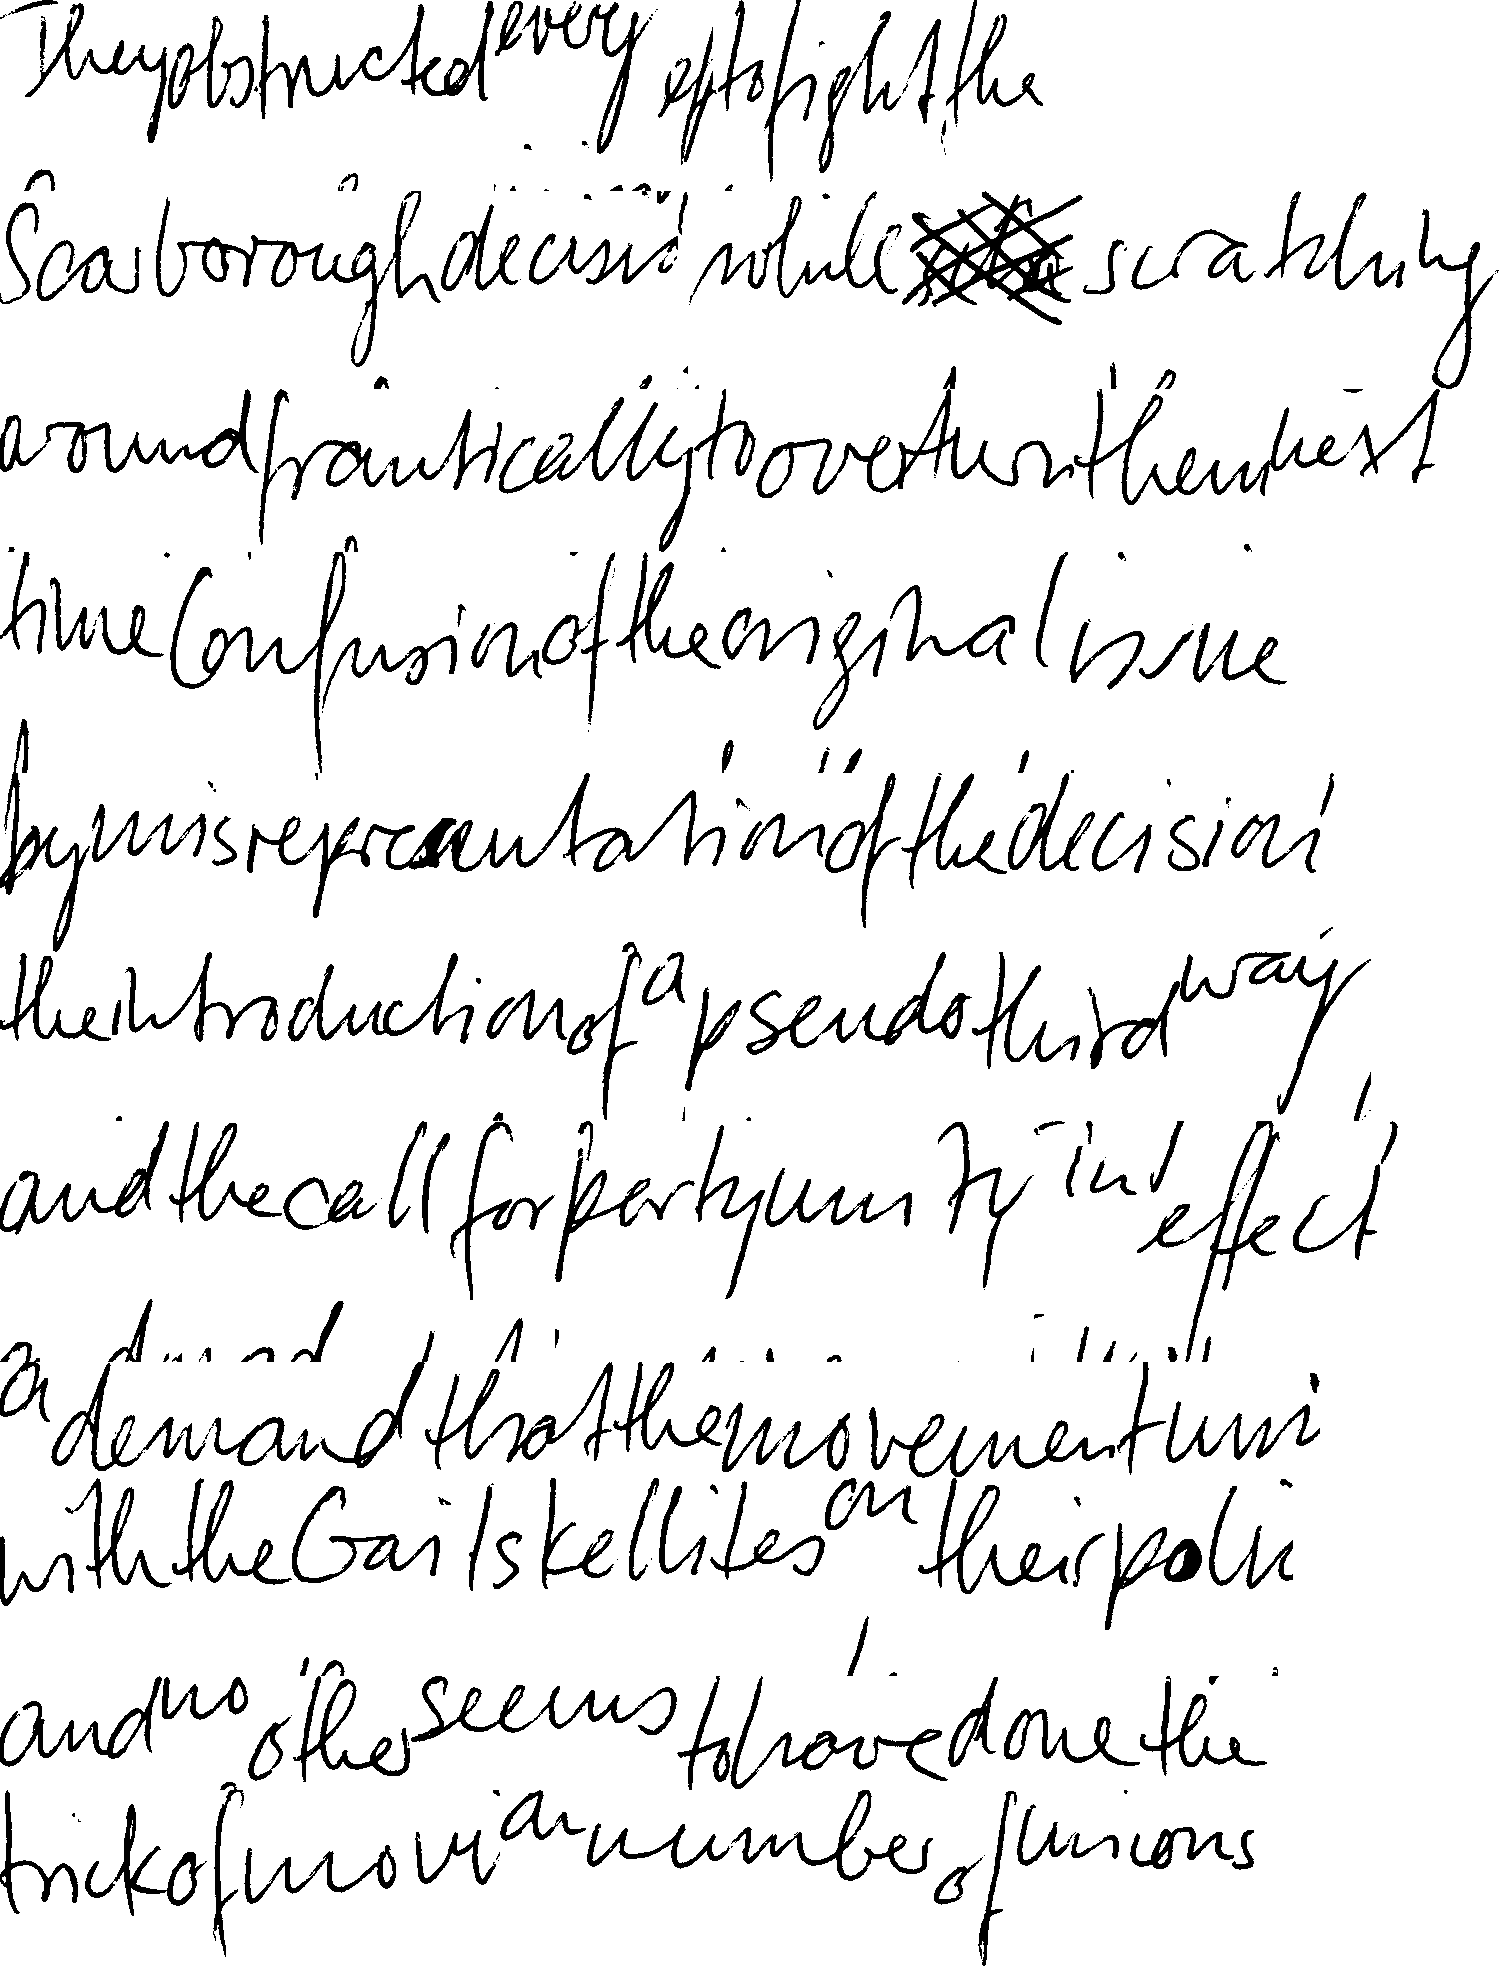 They obstructed every eftofight the
Scarborough decisio while scratching
around frantically to overturn them next
time Confusion of the original issue
by misrepresentation of the decision
the introduction of a pseudo third way
and the call for party unity in effect
a demand that the movement uni
with the Gaitskellites on their polic
and no other seems to have done the
trick of movi a number of unions